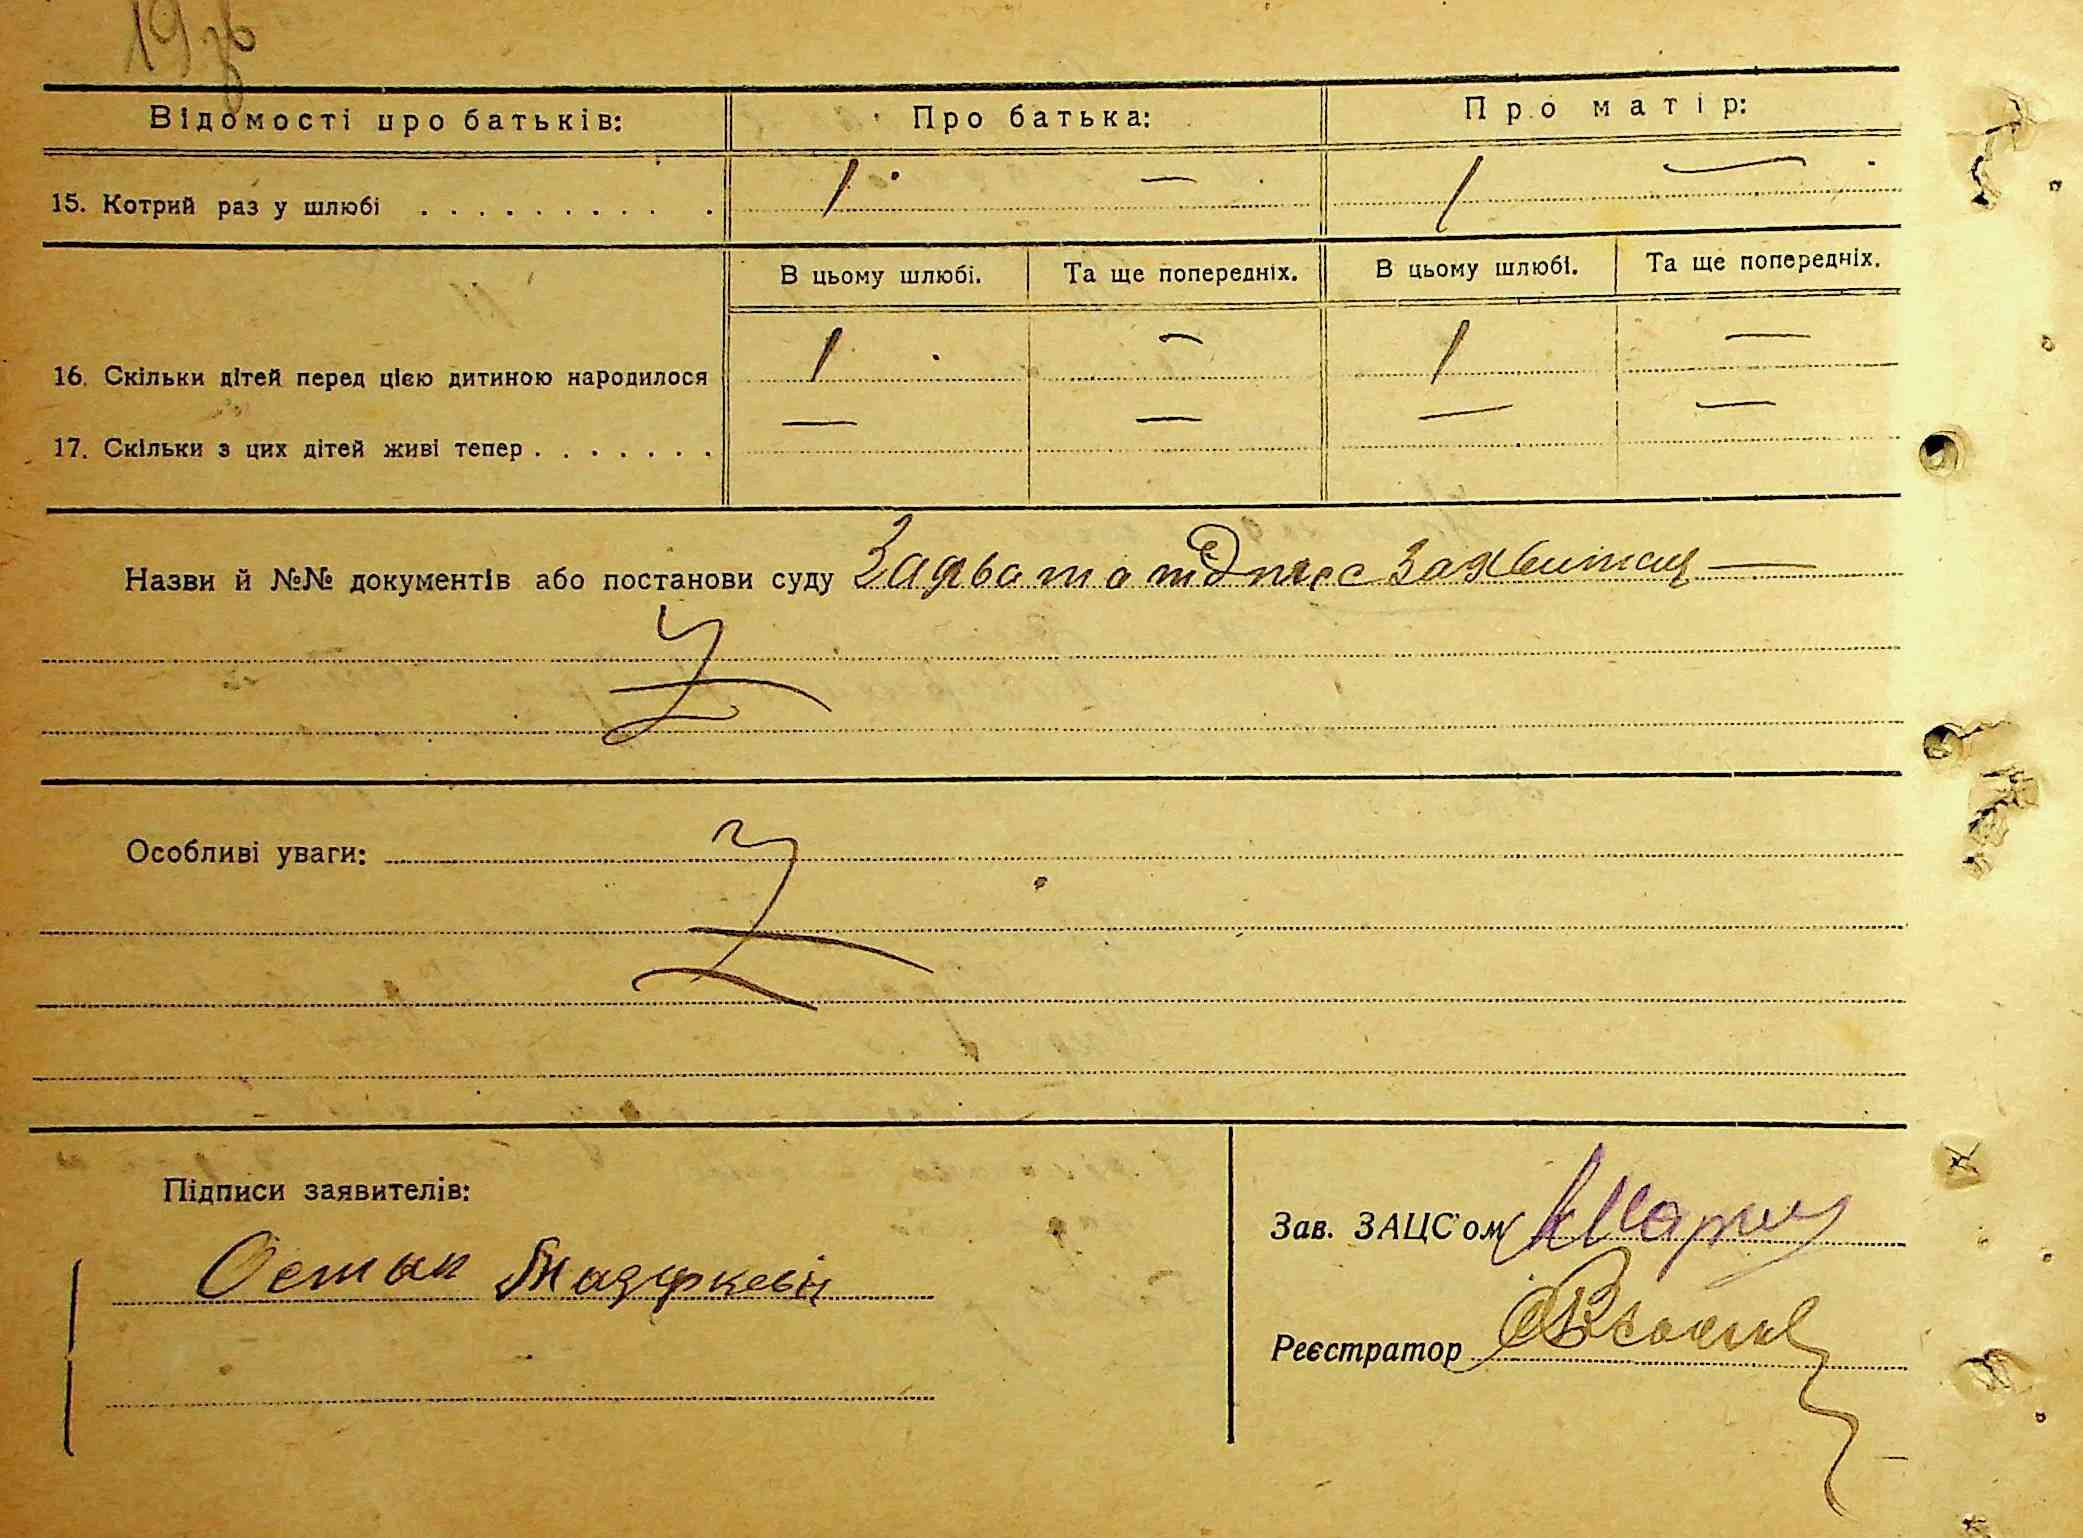 19 зв
Відомості про батьків: Про батька: Про матір:
15. Котрий раз у шлюбі . . . . . . . . . . 1 — 1 —
В цьому шлюбі. Та ще попередніх. В цьому шлюбі. Та ще попередніх.
16. Скільки дітей перед цією дитиною народилося 1 — 1 —
17. Скільки з цих дітей живі тепер . . . . . . . — — — —
Назви й №№ документів або постанови суду Заява та підпис заявитиля —
Особливі уваги:
Підписи заявителів:
Зав. ЗАЦС'ом
Остап Мазуркевіч
Реєстратор